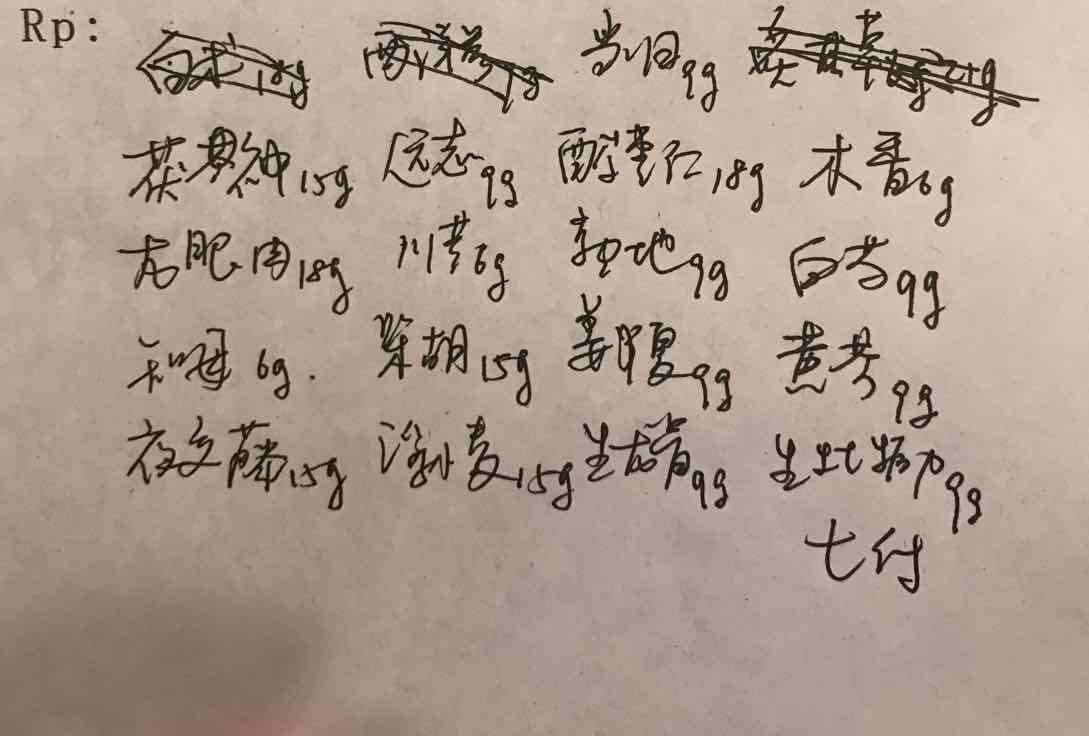 Rp: 白术18g 当归9g
茯神15g 远志9g 酸枣仁18g 木香6g
龙眼肉18g 川芎6g 熟地9g 白芍9g
6g. 柴胡15g 姜半夏9g 黄芩9g
夜交藤15g 浮小麦15g 生龙骨9g 生牡蛎9g
七付